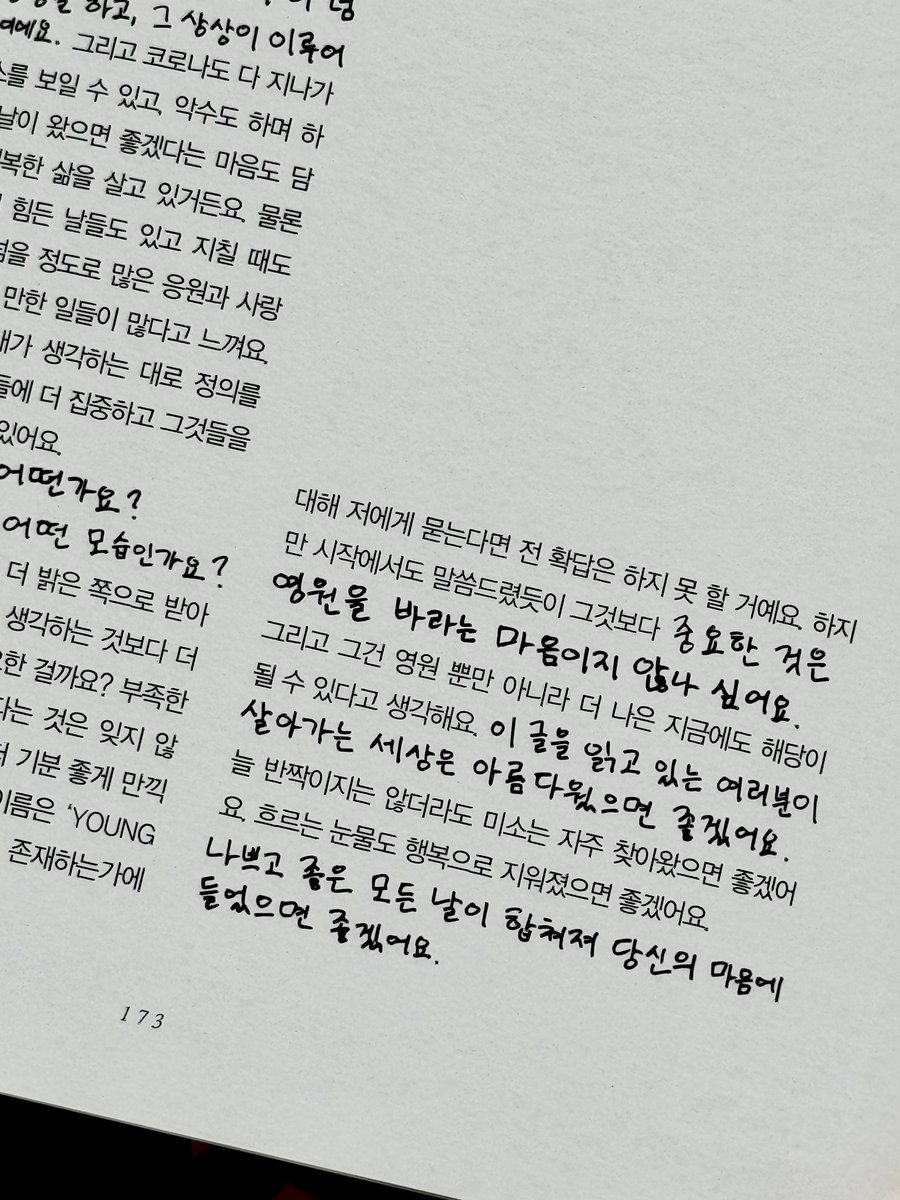 하고, 그 상상이 이루어
여예요. 그리고 코로나도 다 지나가
보일 수 있고, 악수도 하며 하
날이 왔으면 좋겠다는 마음도 담
복한 삶을 살고 있거든요. 물론
힘든 날들도 있고 지칠 때도
넘을 정도로 많은 응원과 사랑
만한 일들이 많다고 느껴요.
내가 생각하는 대로 정의를
들에 더 집중하고 그것들을
있어요.
어떤가요?
어떤 모습인가요?
더 밝은 쪽으로 받아
생각하는 것보다 더
요한 걸까요? 부족한
다는 것은 잊지 않
기분 좋게 만끽
이름은 ‘YOUNG
존재하는가에
대해 저에게 묻는다면 전 확답은 하지 못 할 거예요. 하지
만 시작에서도 말씀드렸듯이 그것보다 중요한 것은
영원을 바라는 마음이지 않나 싶어요.
그리고 그건 영원 뿐만 아니라 더 나은 지금에도 해당이
될 수 있다고 생각해요. 이 글을 읽고 있는 여러분이
살아가는 세상은 아름다웠으면 좋겠어요.
늘 반짝이지는 않더라도 미소는 자주 찾아왔으면 좋겠어
요. 흐르는 눈물도 행복으로 지워졌으면 좋겠어요.
나쁘고 좋은 모든 날이 합쳐져 당신의 마음에
들었으면 좋겠어요.
173